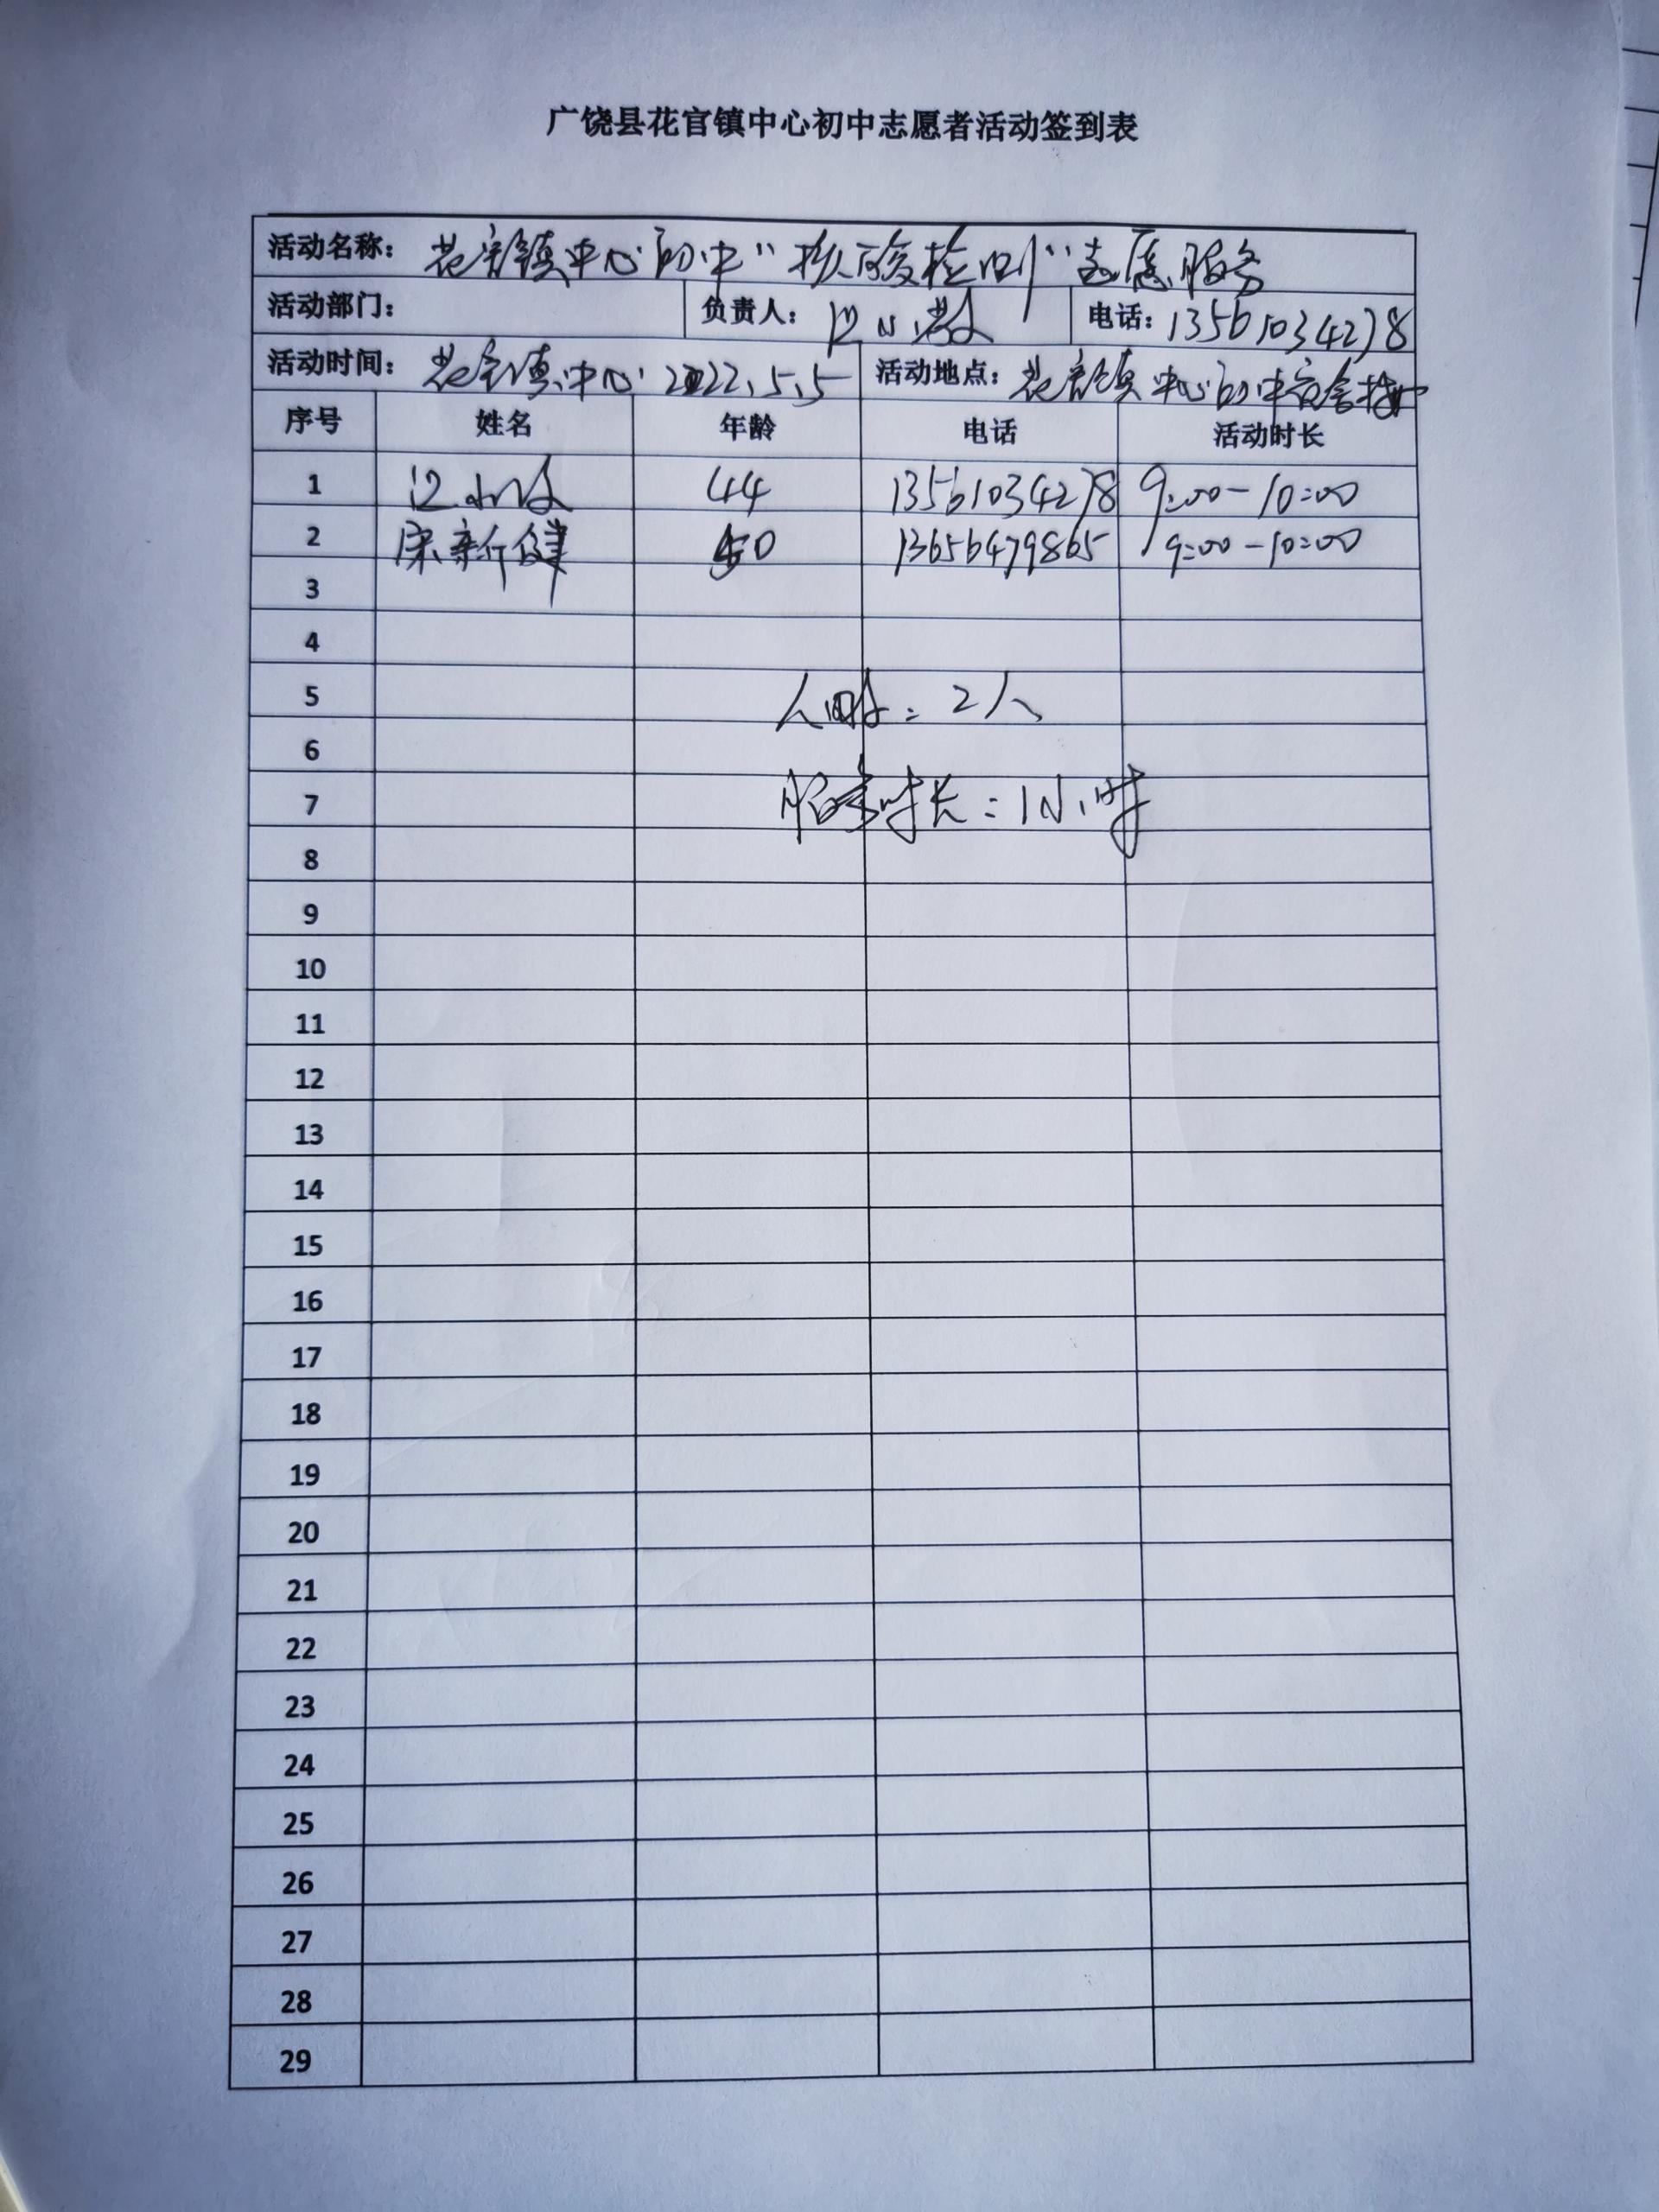 广饶县花官镇中心初中志愿者活动签到表
活动名称： 花官镇中心初中“核酸检测”志愿服务
活动部门： 负责人： 电话：13561034278
活动时间： 花官镇中心 2022.5.5 活动地点： 花官镇中心初中宿舍楼
序号 姓名 年龄 电话 活动时长
1 44 13561034278 9:00-10:00
2 新健 13656479865 9:00-10:00
3
4
5 2人
6
7 服务时长：1小时
8
9
10
11
12
13
14
15
16
17
18
19
20
21
22
23
24
25
26
27
28
29